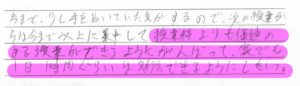 今まで、少し手をぬいていた気がするので、次の授業か
らは今まで以上に集中して授業料よりも価値の
ある授業ができるようにがんばって、家でも
1日1時間ぐらいは勉強できるようにしたい。